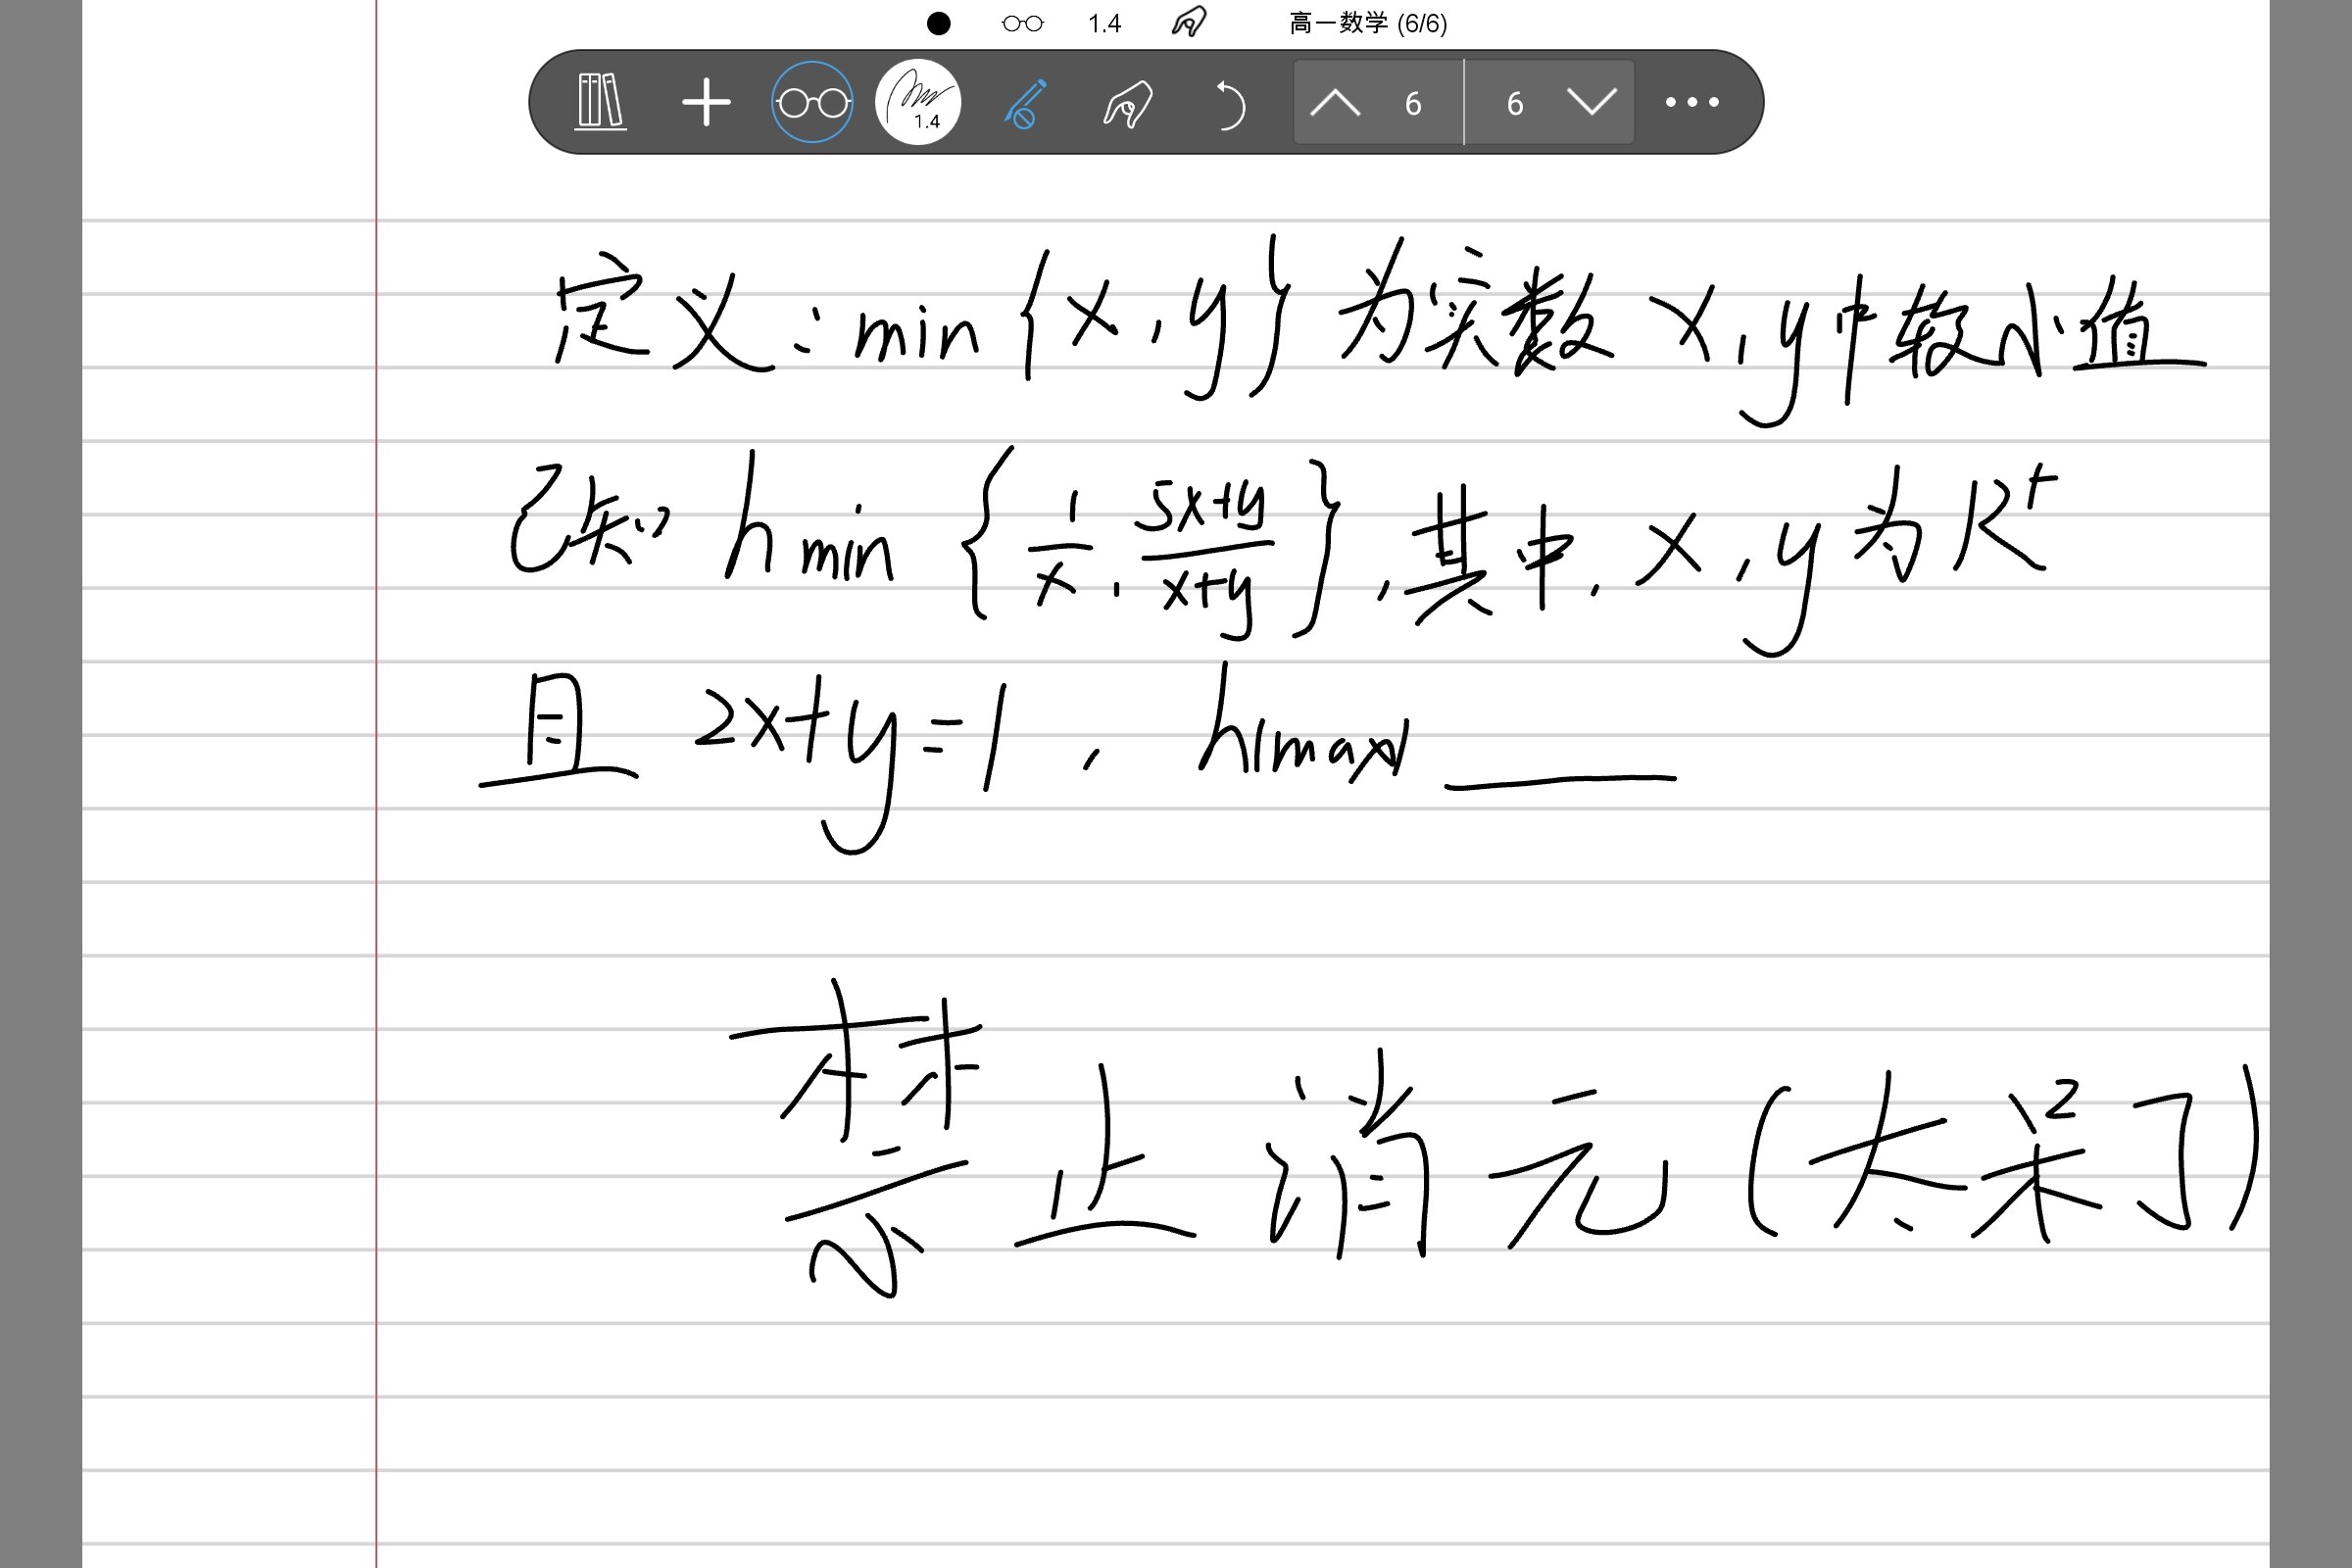 1.4 高一数学 (6/6)
1.4 6 6
定义:min{x,y}为实数x,y中较小值
已知 h min{1/x, (5x+y)/(x+y)},其中,x,y为R⁺
且 2x+y=1, hmax ______
禁止消元(太呆了)